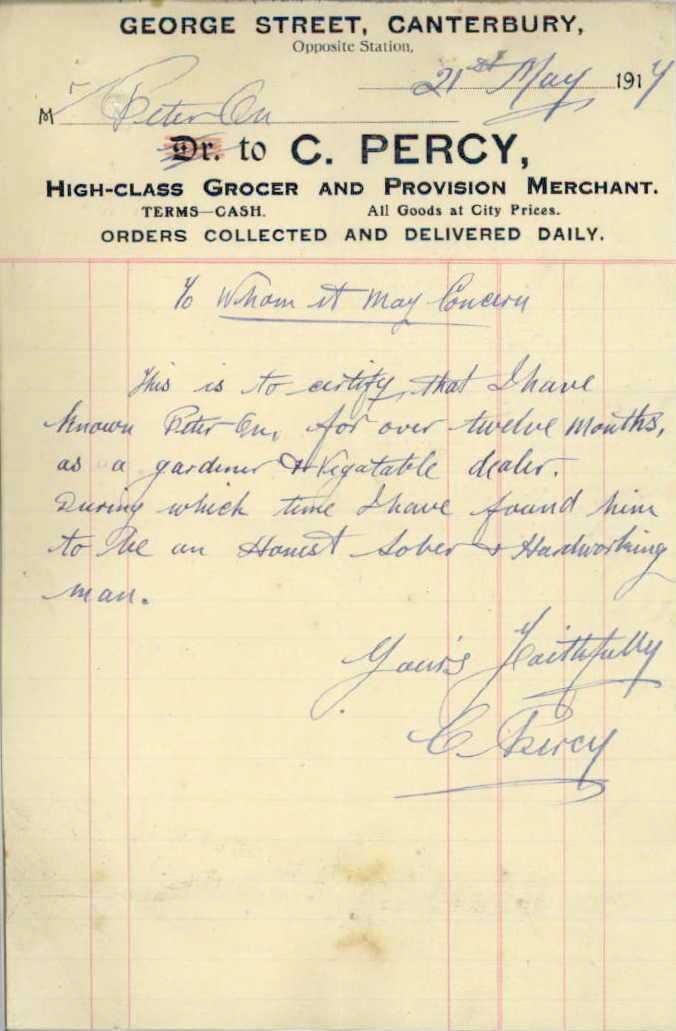 GEORGE STREET, CANTERBURY,
Opposite Station,
21st May 1914
Mr Peter On
Dr. to C. PERCY,
HIGH-CLASS GROCER AND PROVISION MERCHANT.
TERMS—CASH. All Goods at City Prices.
ORDERS COLLECTED AND DELIVERED DAILY.
To Whom it May Concern
This is to certify, that I have
known Peter On, for over twelve months,
as a gardener & Vegatable dealer.
During which time I have found him
to be an Honest Sober & Hardworking
man.
Your's Faithfully
C. Percy